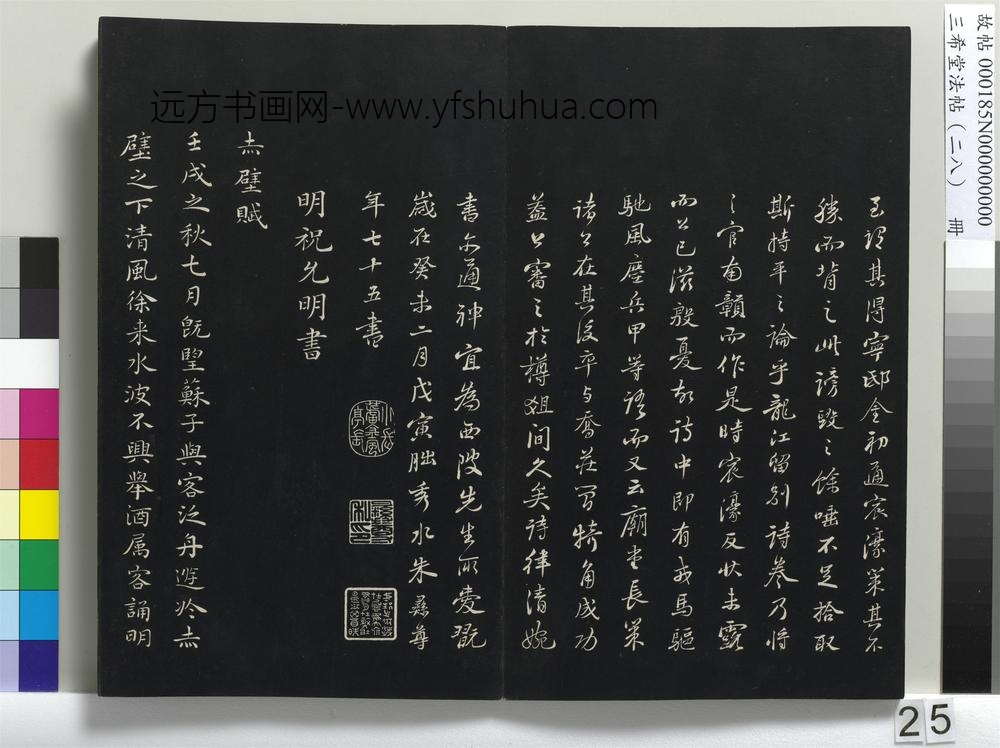 至谓其得寧邸金初通宸濠策其不
勝而背之此謗毀之餘唾不足拾取
斯持平之論乎龍江留別詩卷乃将
之官南贛而作是時宸濠反状未露
而公已滋殷憂故詩中即有戎馬驅
馳風塵兵甲等語而又云廟堂長策
諸公在其後卒与喬莊簡犄角成功
蓋公審之於樽俎间久矣詩律清婉
書亦通神宜為西陂先生所愛翫
歳在癸未二月戊寅朏秀水朱彝尊
年七十五書
明祝允明書
赤壁賦
壬戌之秋七月既望蘇子與客泛舟遊於赤
壁之下清風徐来水波不興舉酒属客誦明
远方书画网-www.yfshuhua.com
故帖 000185N000000000
三希堂法帖（二八） 冊
25